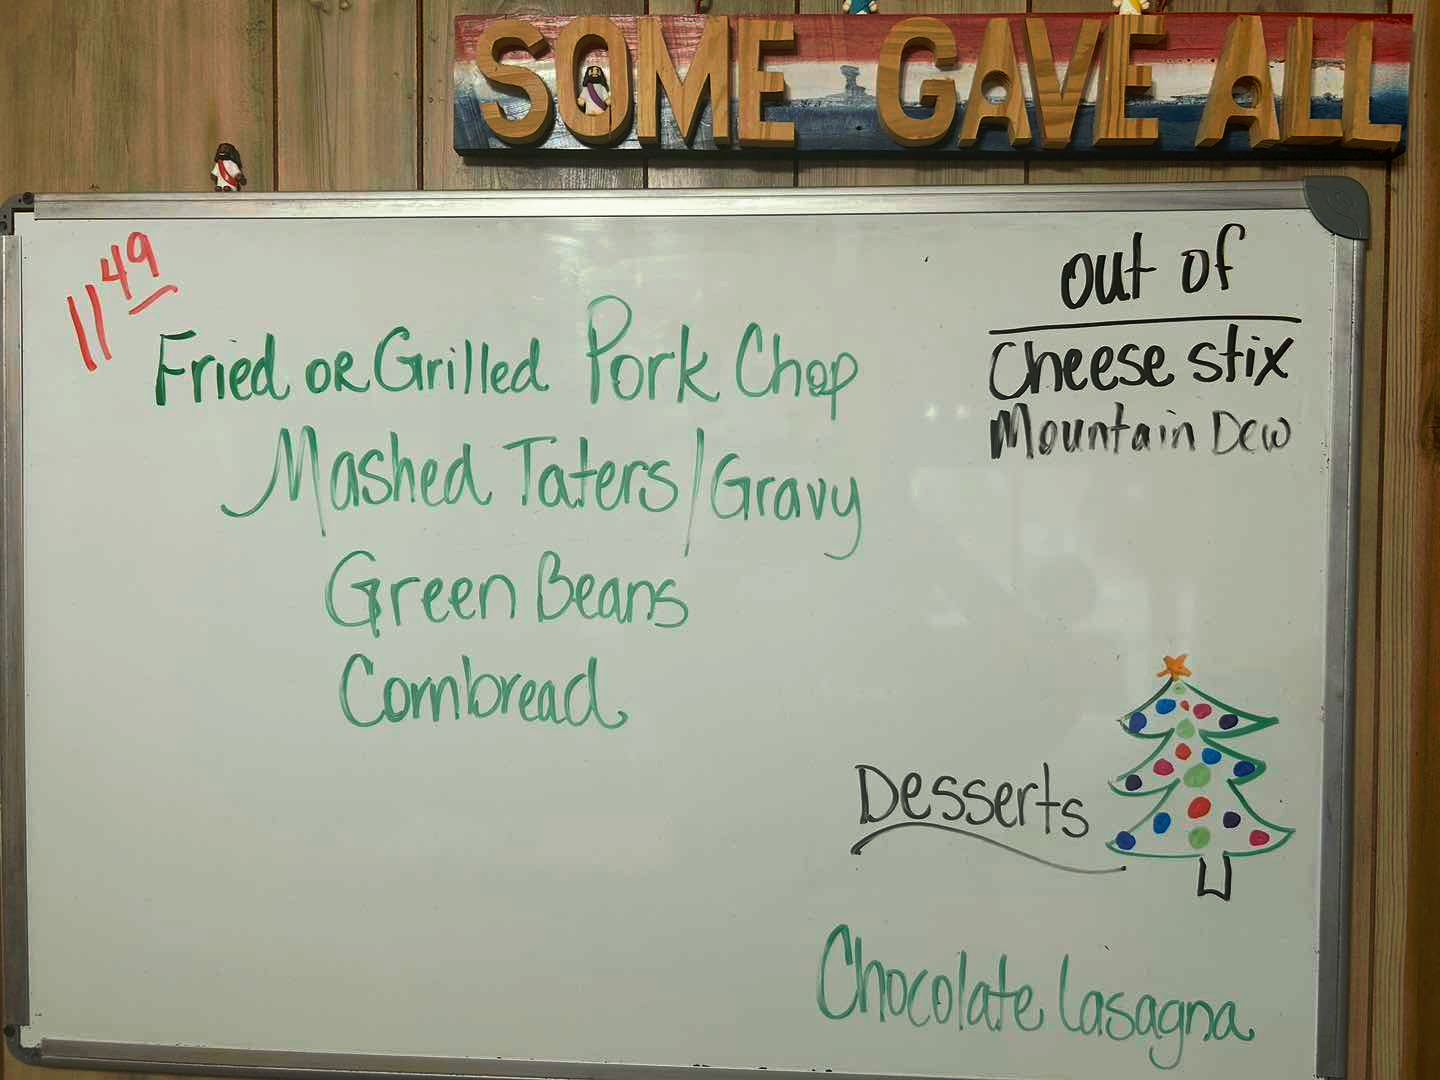 SOME GAVE ALL
11 49
Fried or Grilled Pork Chop
Mashed Taters/Gravy
Green Beans
Cornbread
out of
Cheese stix
Mountain Dew
Desserts
Chocolate Lasagna